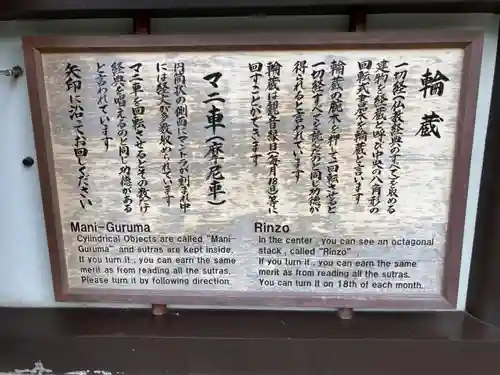 輪蔵
一切経（仏教経典のすべて）を収める
建物を経蔵と呼び中央の八角形の
回転式書架を輪蔵と言います
輪蔵の腕木を押して一回転させると
一切経すべてを読んだのと同じ功徳が
得られると言われています
輪蔵は観音縁日（毎月18日）等に
回すことができます
マニ車（摩尼車）
円筒状の側面にマントラが刻まれ中
には経文が多数収められています
マニ車を回転させるとその数だけ
経典を唱えるのと同じ功徳がある
と言われています
矢印に沿ってお回しください
Mani-Guruma
Cylindrical Objects are called "Mani-
Guruma" and sutras are kept inside.
If you turn it , you can earn the same
merit as from reading all the sutras.
Please turn it by following direction.
Rinzo
In the center , you can see an octagonal
stack , called "Rinzo"
If you turn it , you can earn the same
merit as from reading all the sutras.
You can turn it on 18th of each month.